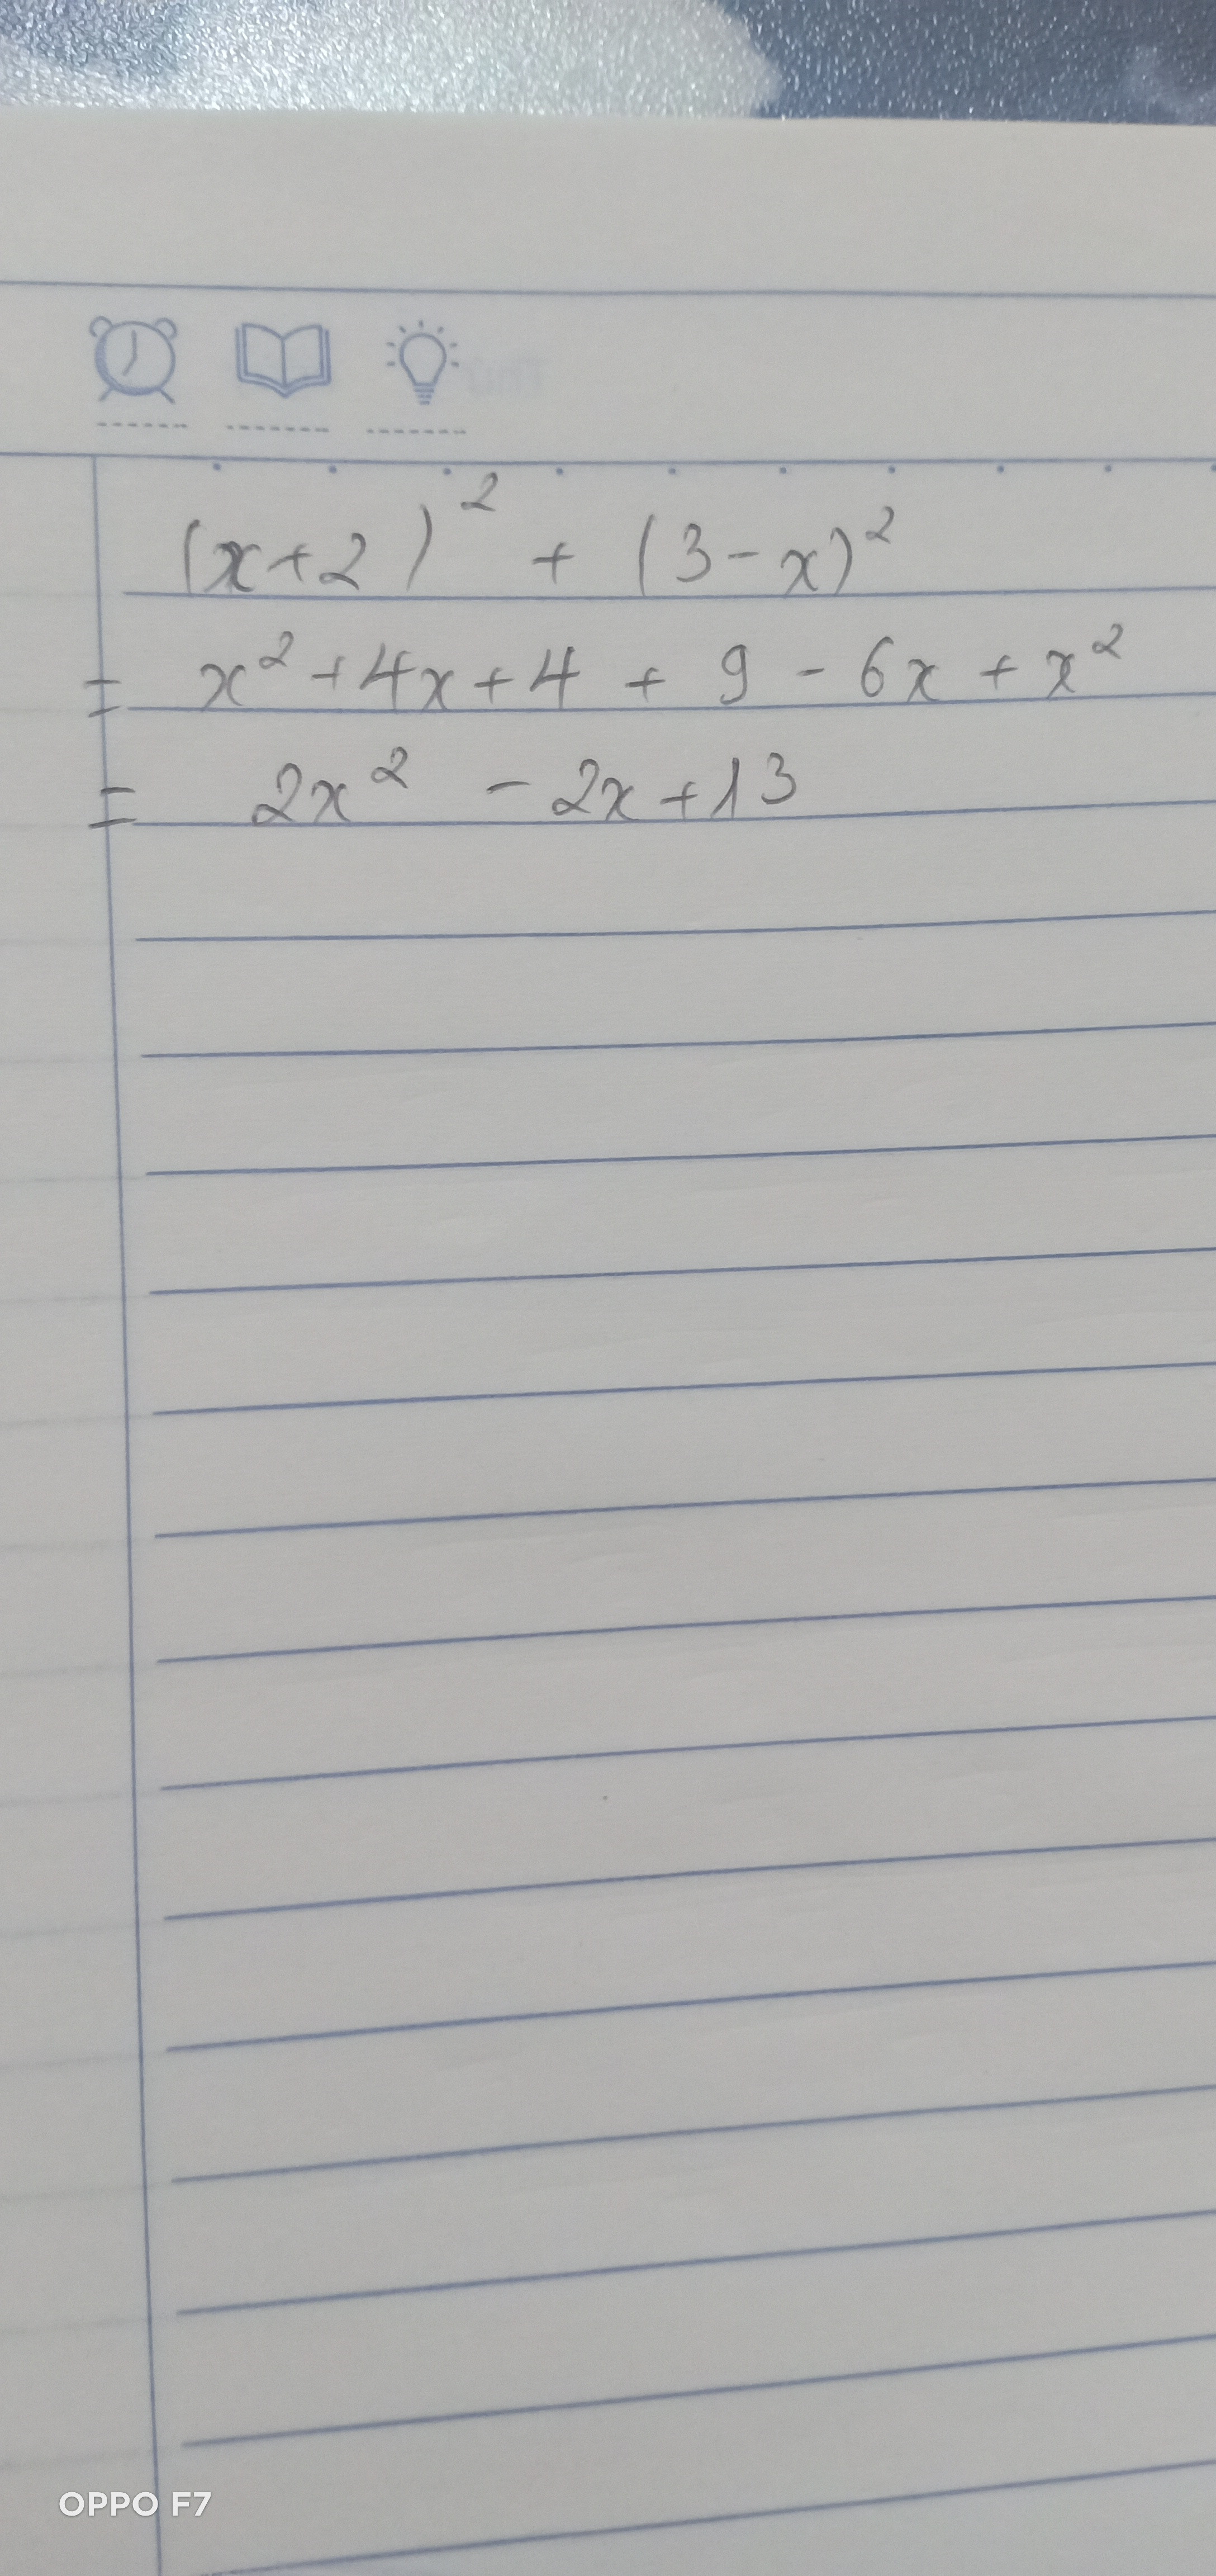 (x+2)² + (3-x)²
= x² + 4x + 4 + 9 - 6x + x²
= 2x² - 2x + 13
OPPO F7